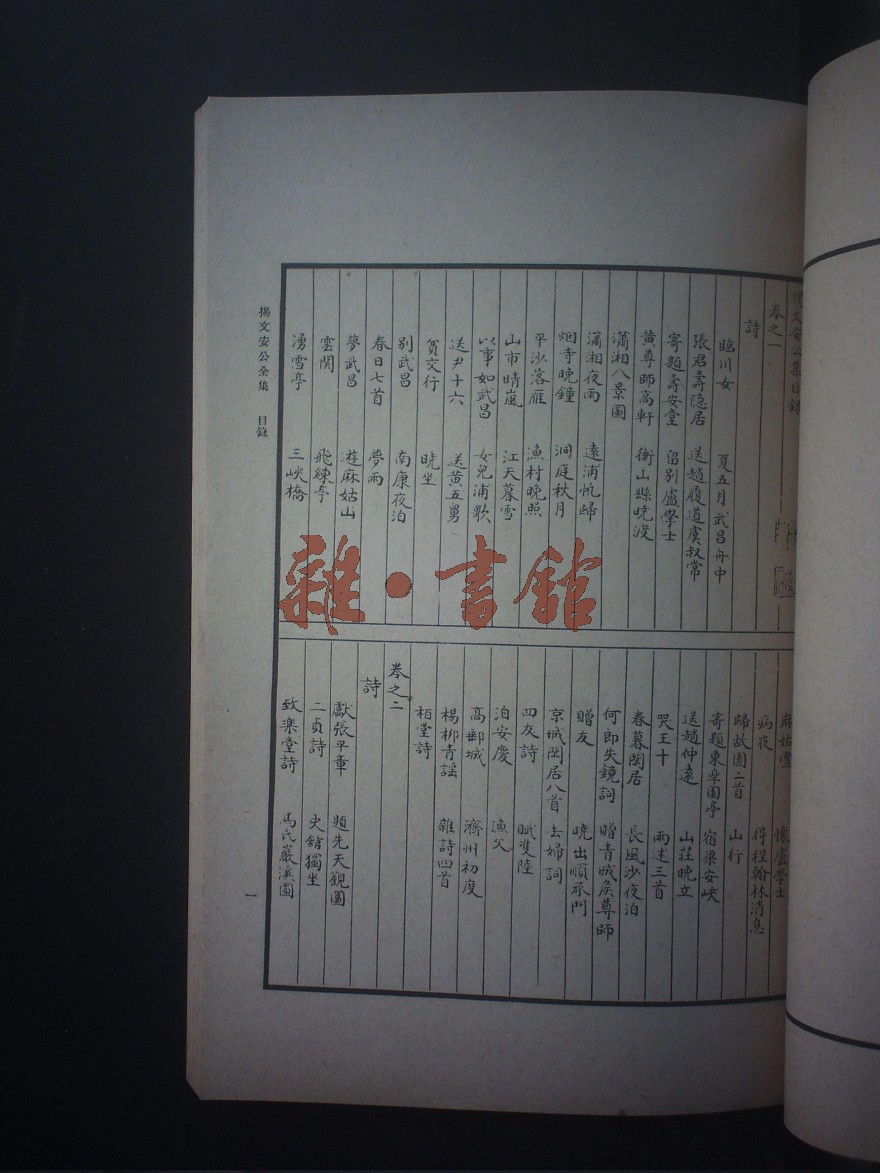 揭文安公集目錄
卷之一
詩
臨川女 夏五月武昌舟中
張君壽隐居 送趙履道虞叔常
寄題壽安堂 留别盧學士
黄尊師高軒 衡山縣曉渡
瀟湘八景圖
瀟湘夜雨 遠浦㠶歸
烟寺晚鐘 洞庭秋月
平沙落雁 漁村晚照
山市晴嵐 江天暮雪
以事如武昌 女兒浦歌
送尹十六 送黄五舅
貧交行 晓坐
别武昌 南康夜泊
春日七首 夢雨
夢武昌 遊麻姑山
雲閞 飛練亭
湧雪亭 三峽橋
麻姑壇 懷盧學士
病夜 得程翰林消息
歸故園二首 山行
寄題東平園亭 宿梁安峽
送趙仲遠 山莊晚立
哭王十 雨述三首
春暮閒居 長風沙夜泊
何即失鏡詞 贈青城矦尊師
贈友 曉出順承門
京城閒居八首 去婦詞
四友詩 賦雙陸
泊安慶 漁父
高郵城 濟州初度
楊栁青謡 雜詩四首
栢堂詩
卷之二
詩
獻張平章 題先天觀圖
二貞詩 史舘獨坐
致楽堂詩 馬氏巖溪圖
揭文安公全集 目錄
一
雜·書館